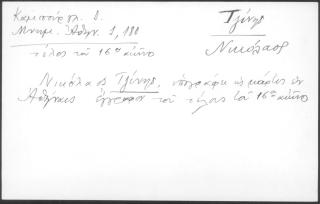 Καμπούρογλ. Δ.
Μνημ. Ἀθην. 1, 180
τέλος τοῦ 16ου αἰῶνο
Τζίνης
Νικόλαος
Νικόλαος Τζίνης, ὑπογράφει ὡς μάρτυς ἐν
Ἀθήναις ἔγγραφον τοῦ τέλους τοῦ 16ου αἰῶνο